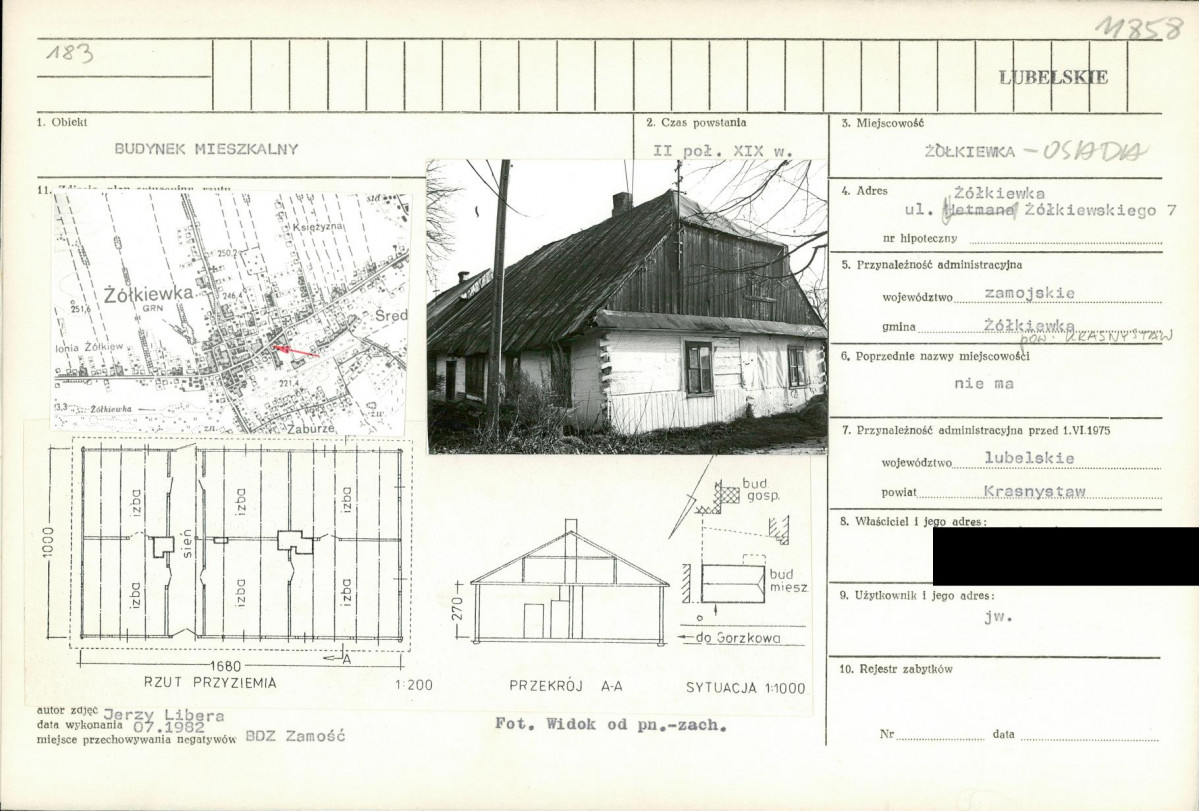 11858
183
LUBELSKIE
1. Obiekt
BUDYNEK MIESZKALNY
2. Czas powstania
II poł. XIX w.
3. Miejscowość
ŻÓŁKIEWKA - OSADA
4. Adres
Żółkiewka
ul. Hetmana Żółkiewskiego 7
nr hipoteczny
5. Przynależność administracyjna
województwo zamojskie
gmina Żółkiewka
pow. KRASNYSTAW
6. Poprzednie nazwy miejscowości
nie ma
7. Przynależność administracyjna przed 1.VI.1975
województwo lubelskie
powiat Krasnystaw
8. Właściciel i jego adres:
9. Użytkownik i jego adres:
jw.
10. Rejestr zabytków
Nr data
11.
std
Księżyzna
250,2
Żółkiewka
GRN
246,4
251,6
Śred
lonia Żółkiew
221,4
3,3
Żółkiewka
zn.
Zaburze
żw
1000
izba
izba
izba
sień
izba
izba
izba
1680
A
RZUT PRZYZIEMIA 1:200
270
PRZEKRÓJ A-A
bud
gosp.
bud
miesz.
do Gorzkowa
SYTUACJA 1:1000
autor zdjęć Jerzy Libera
data wykonania 07.1982
miejsce przechowywania negatywów BDZ Zamość
Fot. Widok od pn.-zach.